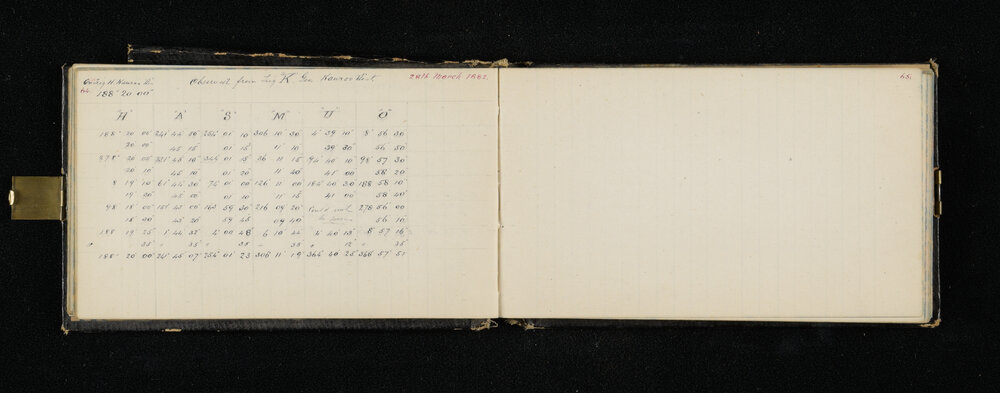 Observed from Trig "K" Geo. 28th March 1882 65
188° 20' 00"
"H" "A" "S" "M" "U" "O"
188° 20' 00" 241° 44' 50" 254° 01' 10" 306° 10' 30" 4° 39' 10" 8° 56' 30"
20 00 45 15 01 15 11 10 39 30 56 50
278 20 05 321 45 10 344 01 15 36 11 15 94 40 10 98 57 30
20 10 45 10 01 20 11 40 45 00 58 20
8 19 10 61 44 30 74 01 00 126 11 00 184 40 30 188 58 10
19 30 45 00 01 10 11 15 41 00 58 40
98 18 00 151 45 00 164 59 30 216 09 20 Could not 278 56 00
18 00 45 20 59 45 09 40 be seen 56 10
188 19 25 1 44 32 4 00 48 6 10 44 4 40 13 8 57 16
35 35 35 35 12 35
188 20 00 241 45 07 254 01 23 306 11 19 364 40 25 368 57 51